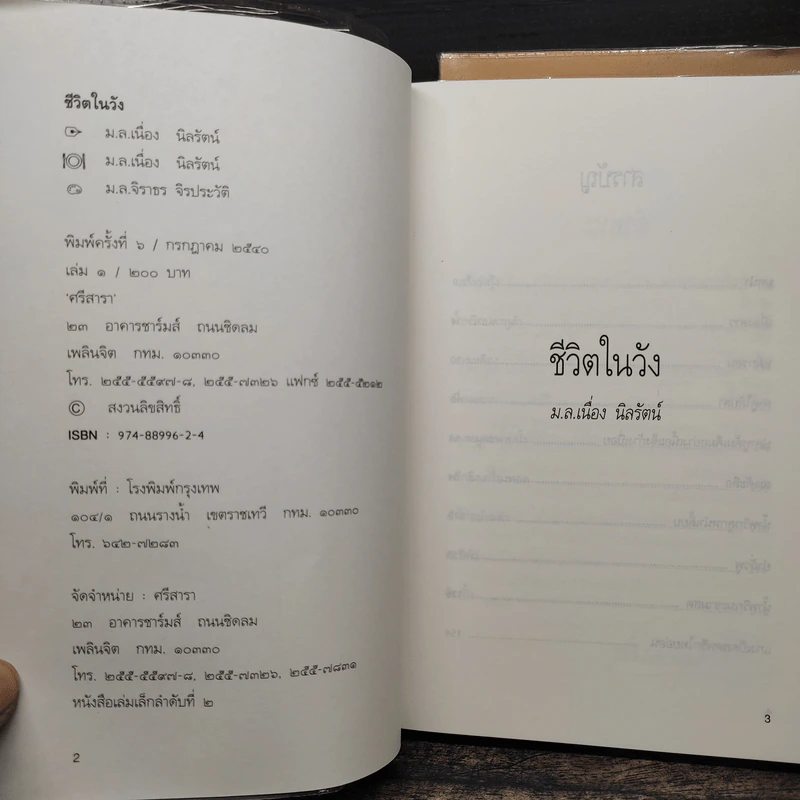 ชีวิตในวัง
ม.ล.เนื่อง นิลรัตน์
ม.ล.เนื่อง นิลรัตน์
ม.ล.จิราธร จิรประวัติ
พิมพ์ครั้งที่ ๖ / กรกฎาคม ๒๕๔๐
เล่ม ๑ / ๒๐๐ บาท
'ศรีสารา'
๒๓ อาคารชาร์มส์ ถนนชิดลม
เพลินจิต กทม. ๑๐๓๓๐
โทร. ๒๕๕-๕๕๙๗-๘, ๒๕๕-๗๓๒๖ แฟกซ์ ๒๕๕-๕๒๑๒
© สงวนลิขสิทธิ์
ISBN : 974-88996-2-4
พิมพ์ที่ : โรงพิมพ์กรุงเทพ
๑๐๔/๑ ถนนรางน้ำ เขตราชเทวี กทม. ๑๐๓๓๐
โทร. ๖๔๒-๗๒๘๓
จัดจำหน่าย : ศรีสารา
๒๓ อาคารชาร์มส์ ถนนชิดลม
เพลินจิต กทม. ๑๐๓๓๐
โทร. ๒๕๕-๕๕๙๗-๘, ๒๕๕-๗๓๒๖, ๒๕๕-๗๘๓๑
หนังสือเล่มเล็กลำดับที่ ๒
2
สารบัญ
ชีวิตในวัง
ม.ล.เนื่อง นิลรัตน์
3